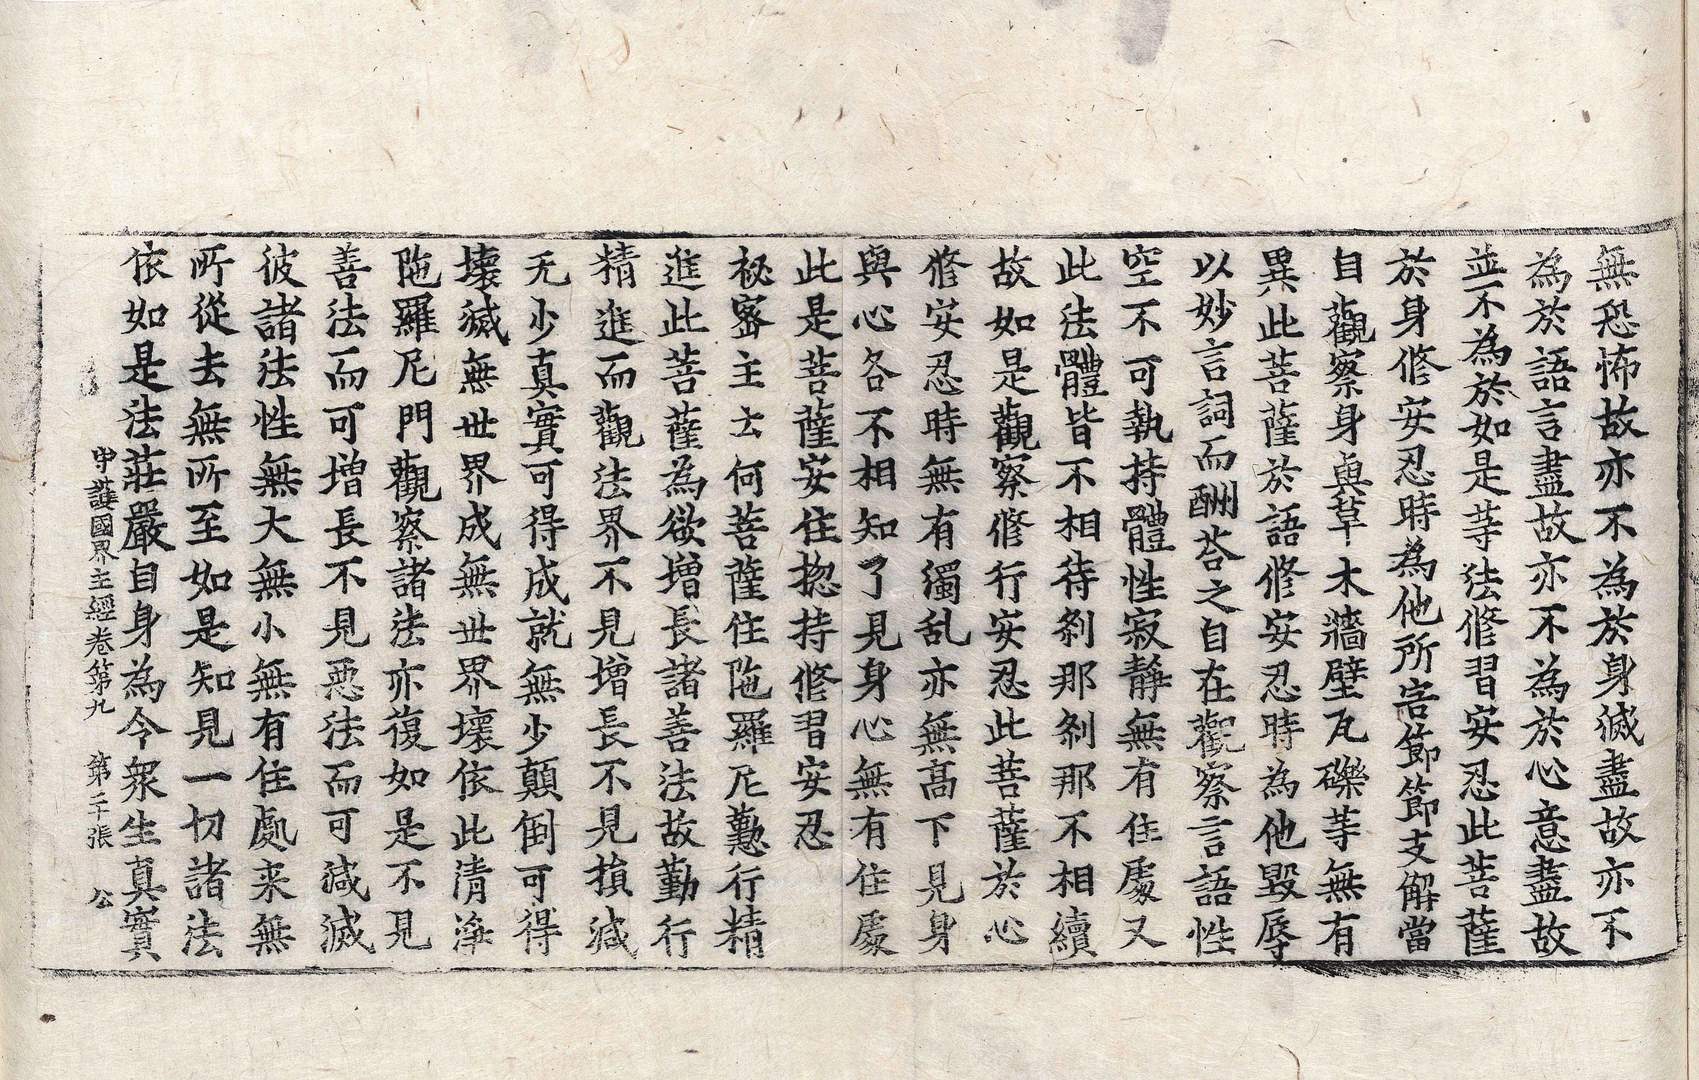 無恐怖故亦不為於身滅盡故亦不
為於語言盡故亦不為於心意盡故
並不為於如是等法修習安忍此菩薩
於身修安忍時為他所害節節支解當
自觀察身與草木牆壁瓦礫等無有
異此菩薩於語修安忍時為他毀辱
以妙言詞而酬荅之自在觀察言語性
空不可執持體性寂靜無有住處又
此法體皆不相待剎那剎那不相續
故如是觀察修行安忍此菩薩於心
修安忍時無有濁乱亦無高下見身
與心各不相知了見身心無有住處
此是菩薩安住揔持修習安忍
祕密主云何菩薩住陁羅尼勤行精
進此菩薩為欲增長諸善法故勤行
精進而觀法界不見增長不見損減
无少真實可得成就無少顛倒可得
壞滅無世界成無世界壞依此清淨
陁羅尼門觀察諸法亦復如是不見
善法而可增長不見惡法而可減滅
彼諸法性無大無小無有住處来無
所從去無所至如是知見一切諸法
依如是法莊嚴自身為令眾生真實
守護國界主經卷第九 第二十張 公